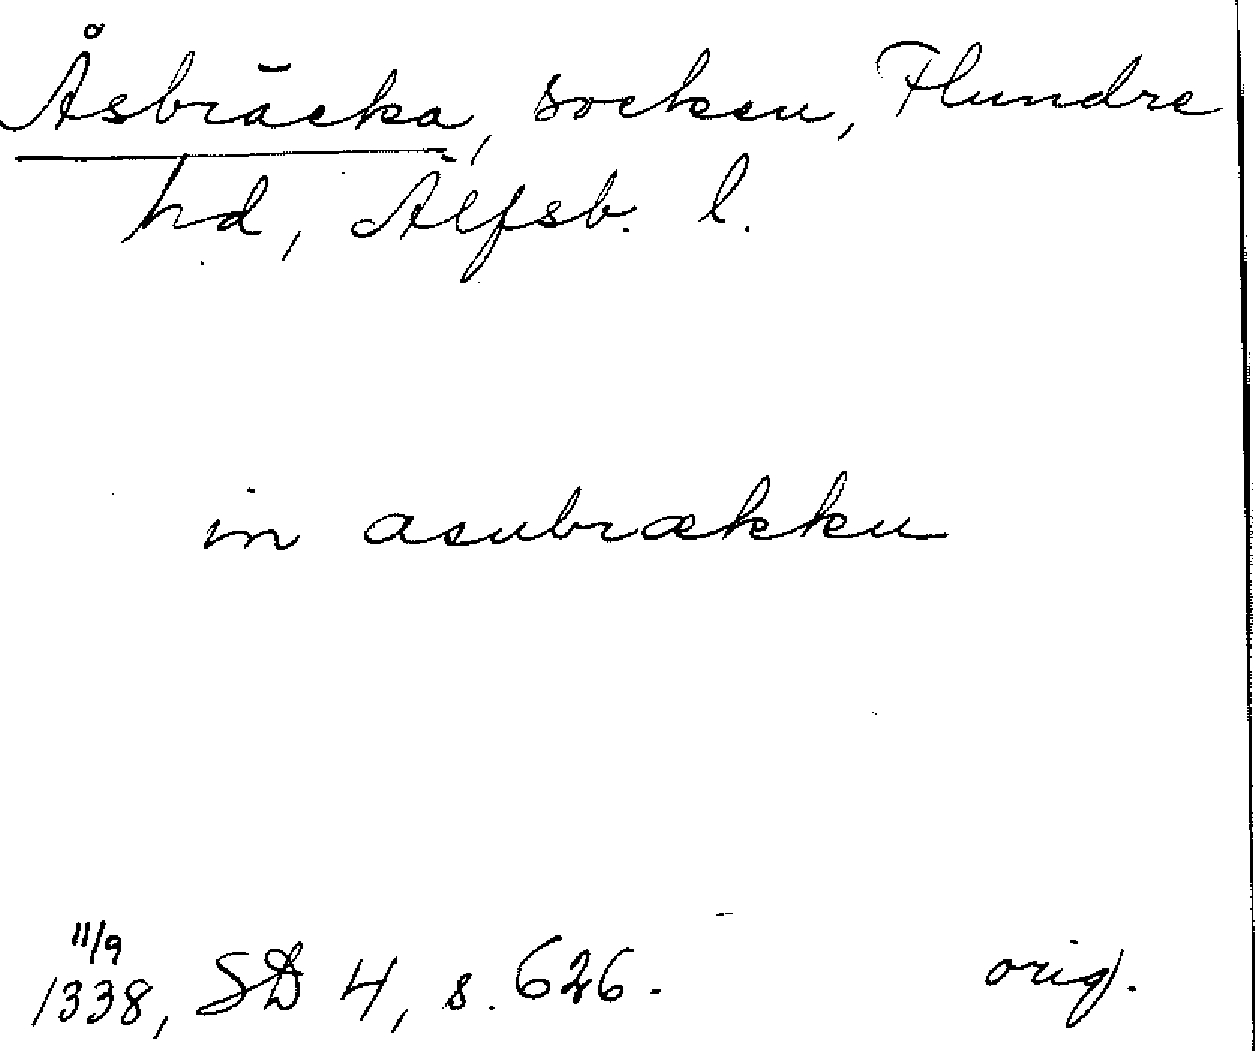 Åsbräcka, socken, Flundre
hd, Älfsb. l.
in asubrækku
11/9
1338, SD 4, s. 626.
orig.